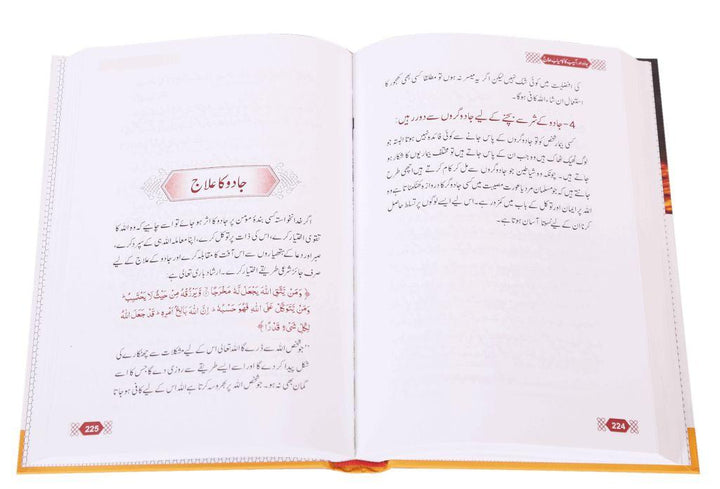 جادو اور آسیب کا کامیاب علاج
کی افضلیت میں کوئی شک نہیں لیکن اگر یہ میسر نہ ہوں تو مطلقا کسی بھی کھجور کا
استعمال ان شاء اللہ کافی ہوگا۔
4- جادو کے شر سے بچنے کے لیے جادوگروں سے دور رہیں:
کسی بیمار شخص کو تو جادوگروں کے پاس جانے سے کوئی فائدہ نہیں ہوتا البتہ جو
لوگ ٹھیک ٹھاک ہیں وہ جب ان کے پاس جاتے ہیں تو مختلف بیماریوں کا شکار ہو
جاتے ہیں۔ چونکہ وہ شیاطین جو جادوگروں سے مل کر کام کرتے ہیں اچھی طرح
جانتے ہیں کہ جو مسلمان مرد یا عورت مصیبت میں کسی جادوگر کا دروازہ کھٹکھٹاتا ہے وہ
اللہ پر ایمان اور توکل کے باب میں کمزور ہے۔ اس لیے ایسے لوگوں پر تسلط حاصل
کرنا ان کے لیے نسبتا آسان ہوتا ہے۔
224
جادو کا علاج
اگر خدانخواستہ کسی بندۂ مومن پر جادو کا اثر ہو جائے تو اسے چاہیے کہ وہ اللہ کا
تقوی اختیار کرے، اس کی ذات پر توکل کرے، اپنا معاملہ اللہ ہی کے سپرد کرے،
صبر اور دعا کے ہتھیاروں سے اس آفت کا مقابلہ کرے اور جادو کے علاج کے لیے
صرف جائز شرعی طریقے اختیار کرے۔ ارشاد باری تعالی ہے:
﴿ وَمَنْ يَتَّقِ اللَّهَ يَجْعَلْ لَهُ مَخْرَجًا ۙ وَيَرْزُقْهُ مِنْ حَيْثُ لَا يَحْتَسِبُ ۚ
وَمَنْ يَتَوَكَّلْ عَلَى اللَّهِ فَهُوَ حَسْبُهُ ۚ إِنَّ اللَّهَ بَالِغُ أَمْرِهِ ۚ قَدْ جَعَلَ اللَّهُ
لِكُلِّ شَيْءٍ قَدْرًا ﴾
”جو شخص اللہ سے ڈرے گا اللہ تعالی اس کے لیے مشکلات سے چھٹکارے کی
شکل پیدا کر دے گا اور اسے ایسے طریقے سے روزی دے گا جس کا اسے
گمان بھی نہ ہو۔ جو شخص اللہ پر بھروسہ کرتا ہے اللہ اس کے لیے کافی ہو جاتا
225